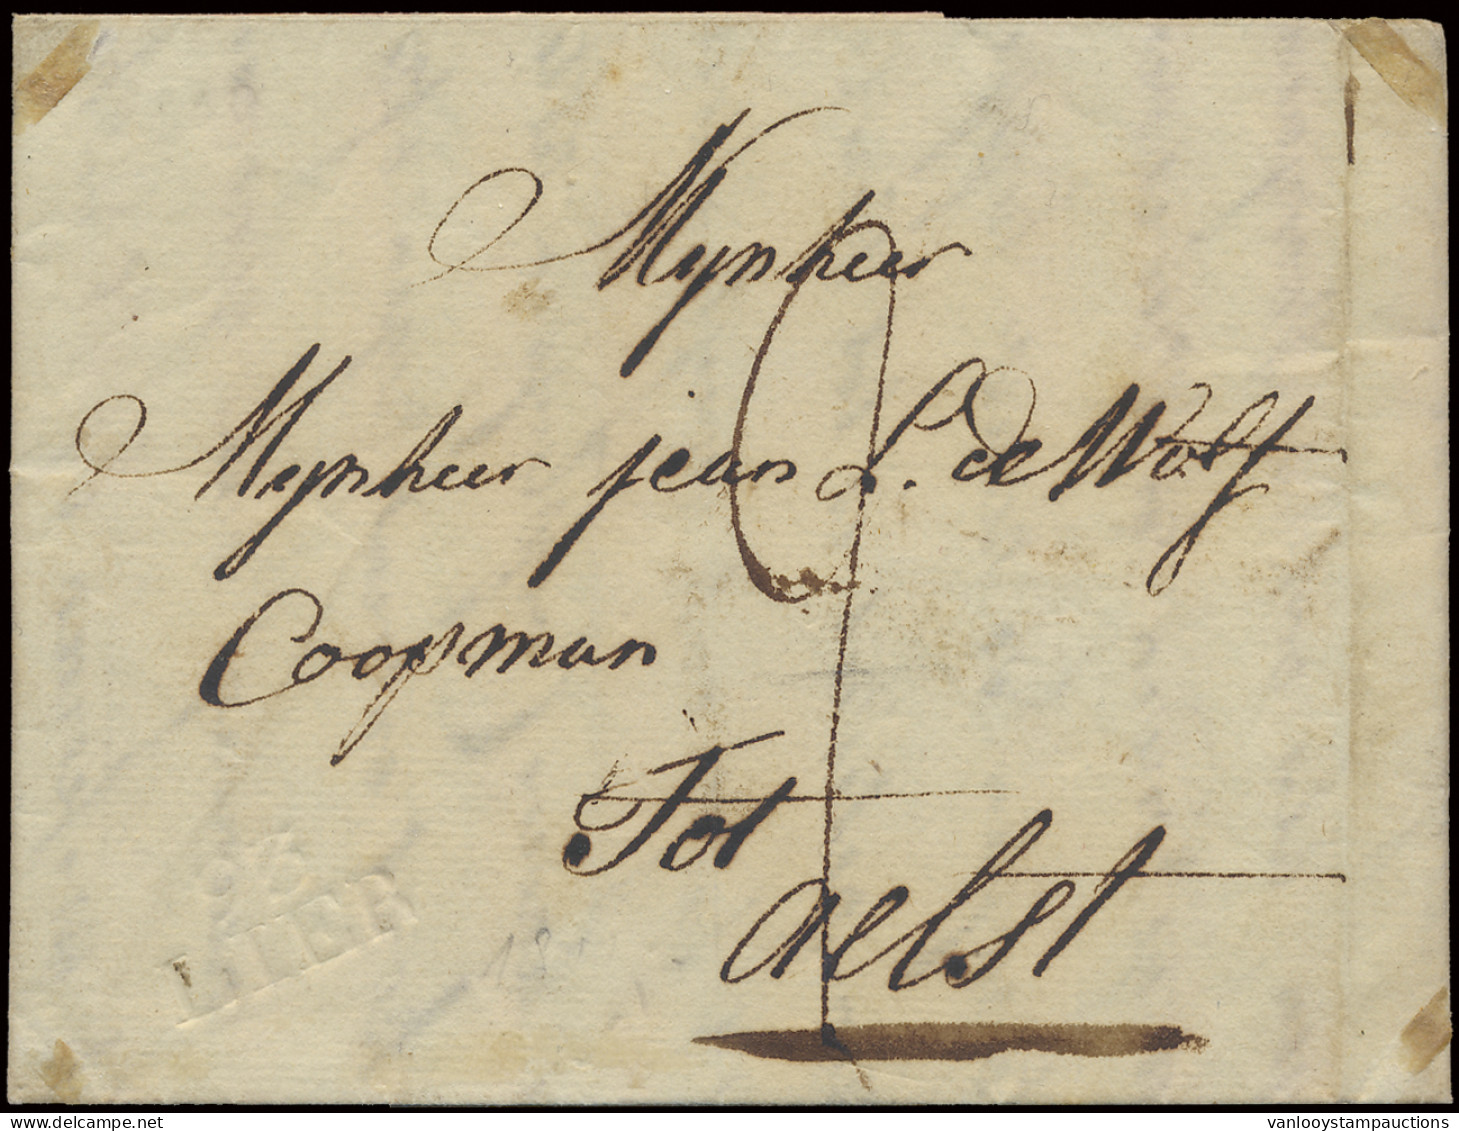 Mynheer
Mynheer jean L. de Wolf
Coopman
Tot
aelst
93
LIER
vanlooystampauctions